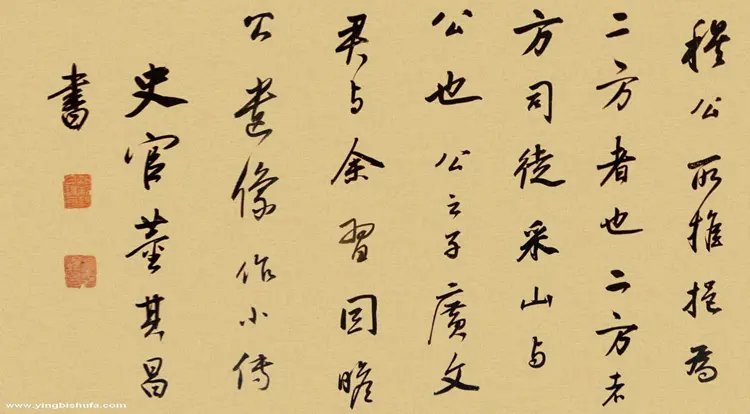 穆公所推挹為
二方者也二方者
方司徒采山与
公也公之子廣文
君与余習因瞻
公遺像作小傳
史官董其昌
書
www.yingbishufa.com